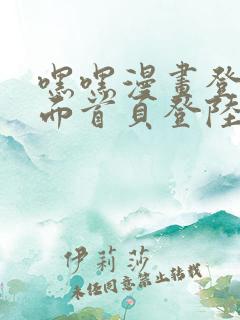 嘿嘿漫畫登
而首頁登陸
伊莉莎
未經同意禁止轉載